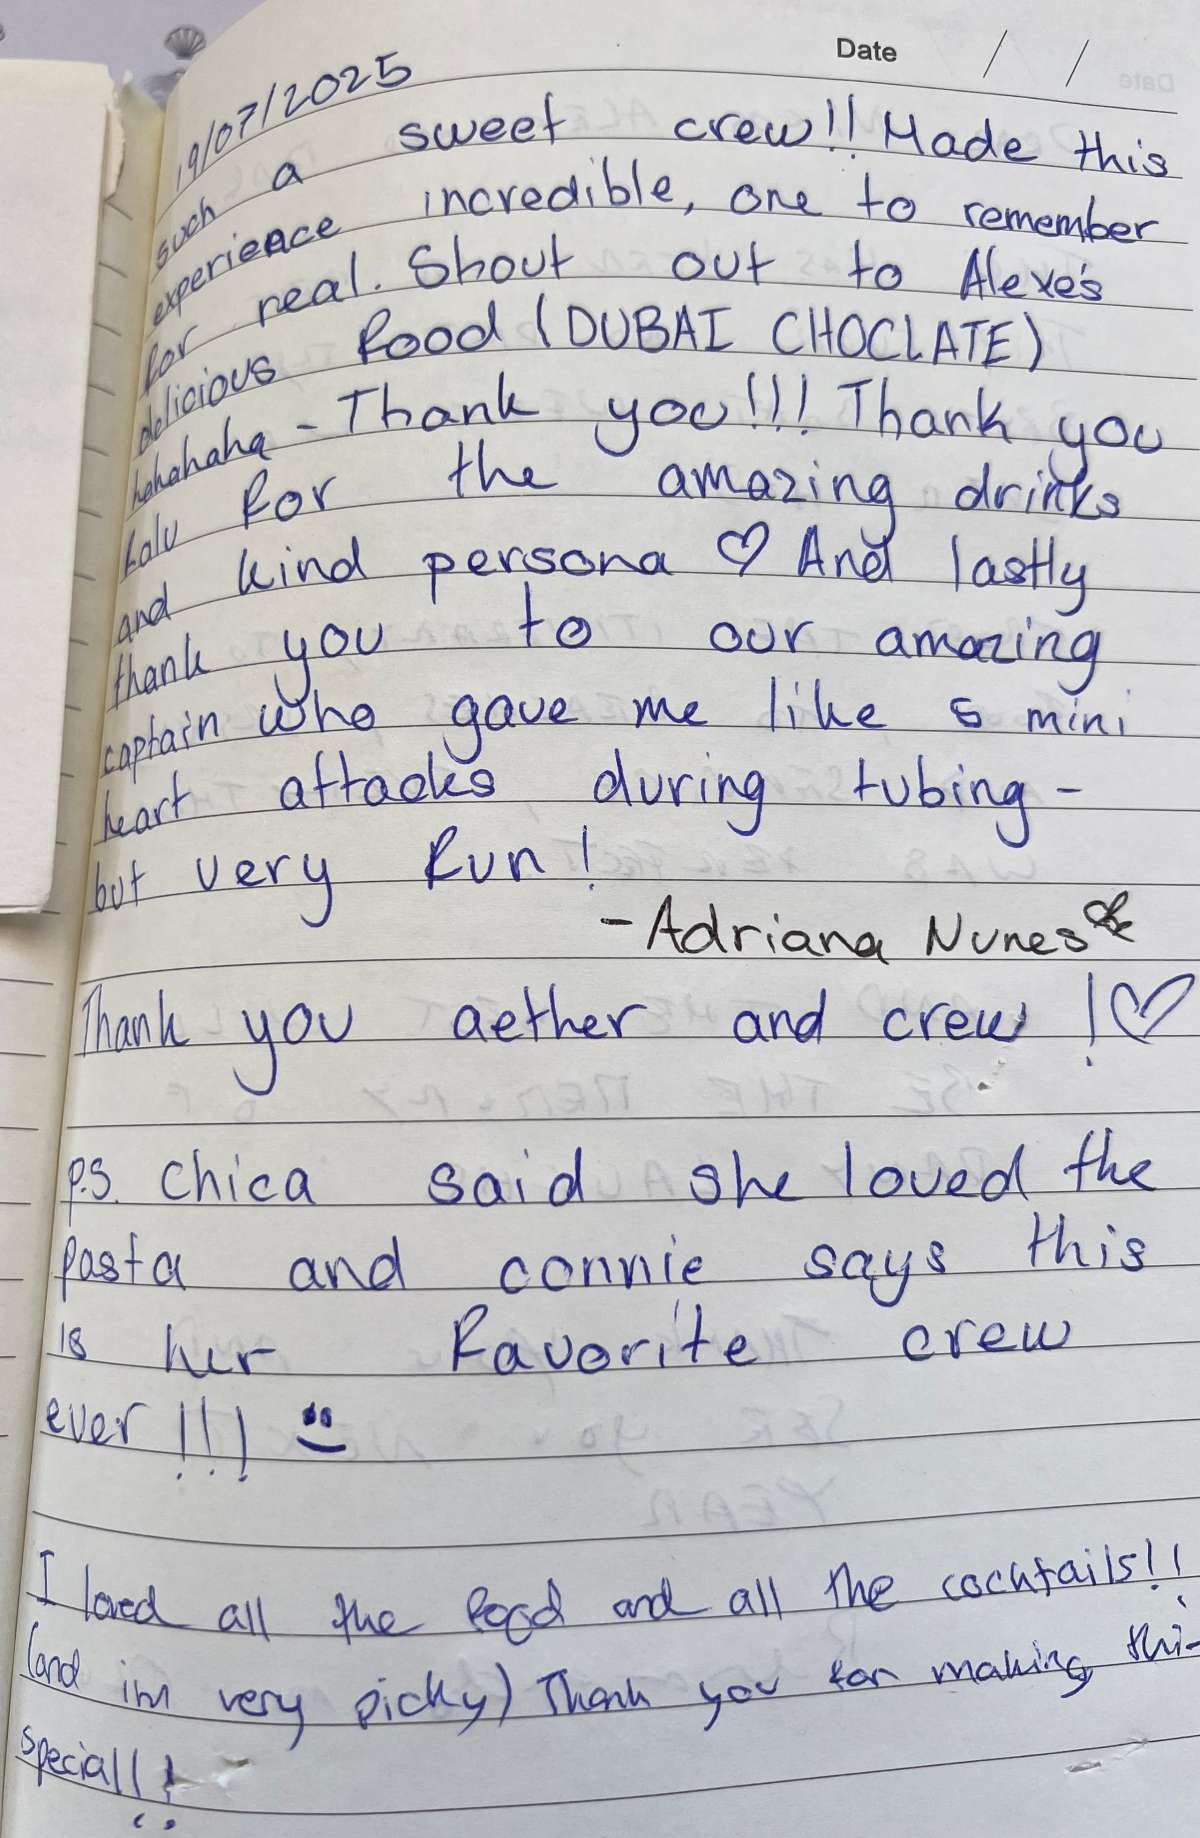 Date / /
19/07/2025
such a sweet crew!! Made this
experience incredible, one to remember
for real. Shout out to Alexe's
delicious food (DUBAI CHOCLATE)
hahahaha - Thank you!!! Thank you
Lalu for the amazing drinks
and kind persona ♡ And lastly
thank you to our amazing
captain who gave me like 5 mini
heart attacks during tubing -
but very fun!
- Adriana Nunes
Thank you aether and crew! ♡
P.S. Chica said she loved the
pasta and connie says this
is her favorite crew
ever!!! :)
I loved all the food and all the cocktails!!
(and im very picky) Thank you for making thi-
special!!